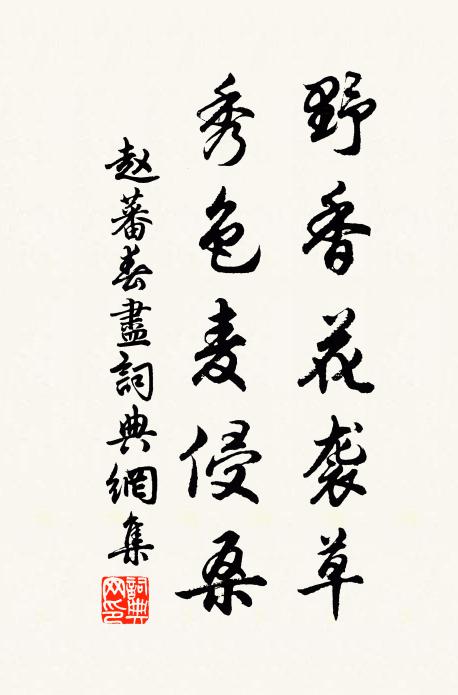 野香花袭草
秀色麦侵桑
赵蕃春盡詞典網集
詞典网印